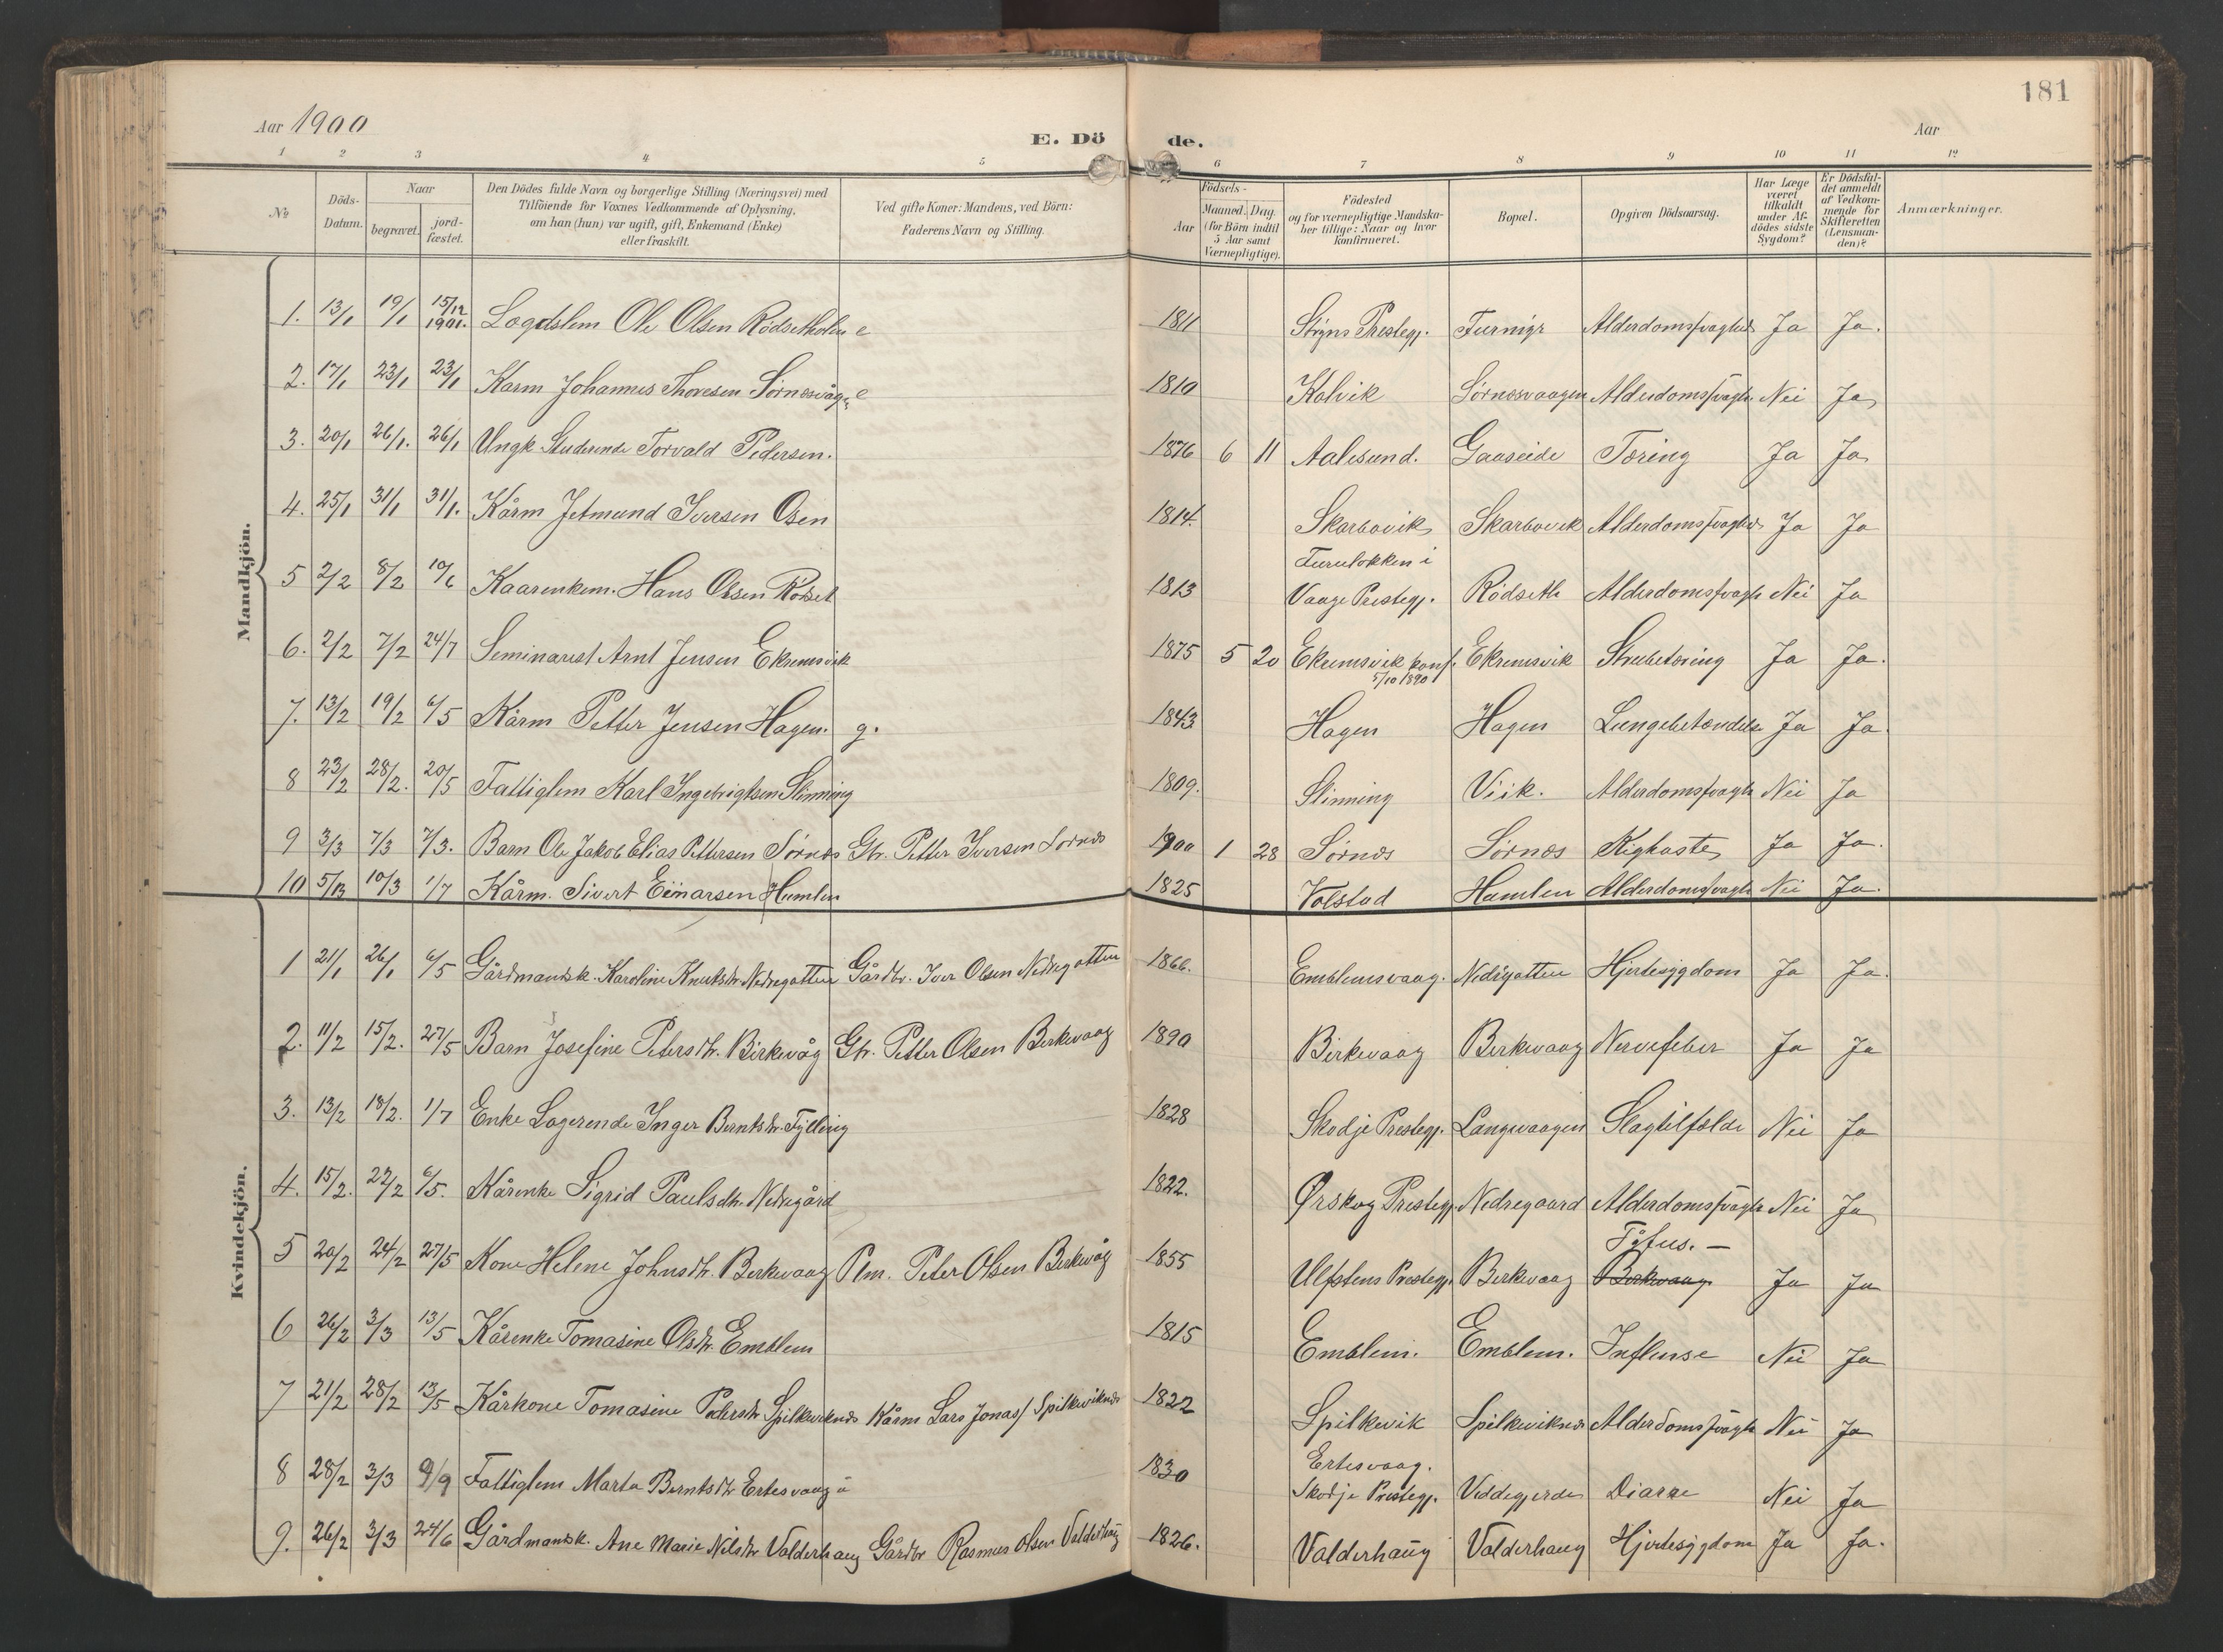 181
Aar 1900
E. Dö de.
Aar
1 2 3 4 5 6 7 8 9 10 11 12
No
Döds-Datum.
Naar
begravet.
jord-fæstet.
Den Dödes fulde Navn og borgerlige Stilling (Næringsvei) med
Tilföiende for Voxnes Vedkommende af Oplysning,
om han (hun) var ugift, gift, Enkemand (Enke)
eller fraskilt.
Ved gifte Koner: Mandens, ved Börn:
Faderens Navn og Stilling.
Födsels-
Aar
Maaned. Dag.
(for Börn indtil
5 Aar samt
Værnepligtige).
Födested
og for værnepligtige Mandska-
ber tillige: Naar og hvor
konfirmeret.
Bopæl.
Opgiven Dödsaarsag.
Har Læge
været
tilkaldt
under Af-
dödes sidste
Sygdom?
Er Dödsfal-
det anmeldt
af Vedkom-
mende for
Skifteretten
(Lensman-
den)?
Anmærkninger.
Mandkjön.
1. 13/1 19/1 15/12 1901. Logdslem Ole Olsen Rödsetholen e 1811 Stryns Prestegj. Furmyr Alderdomssvaghed Ja Ja.
2. 17/1 23/1 23/1 Karm Johannes Thoresen Sörnesvåg e 1810 Kalvik Sörnesvaagen Alderdomssvagh Nei Ja
3. 20/1 26/1. 26/1 Ungk. Studerende Torvald Pedersen. 1876 6 11 Aalesund. Gaaseide Tæring Ja Ja
4. 25/1 31/1 31/1. Kårm Jetmund Iversen Osen 1814. Skarbövik Skarbövik Alderdomssvaghed Ja Ja
5 2/2 8/2 10/6 Kaarenkem. Hans Olsen Rödset 1813 Furulökken i Vaage Prestegj. Rödseth Alderdomssvagh Nei Ja
6. 2/2 7/2 24/7 Seminarist Arnt Jensen Ekremsvik 1875 5 20 Ekremsvik konf. 5/10 1890 Ekremsvik Strubetæring Ja Ja.
7. 13/2 19/2 6/5 Kårm Petter Jensen Hagen. g. 1843 Hagen Hagen Lungebetændelse Ja Ja.
8 23/2 28/2. 20/5 Fattiglem Karl Ingebrigtsen Slinning 1809. Slinning Viik. Alderdomssvagh Nei Ja
9 3/3 7/3 7/3. Barn Ole Jakob Elias Pettersen Sörnes Gbr. Petter Iversen Sörnes 1900 1 28 Sörnes Sörnes Kighoste Ja Ja.
10 5/3 10/3 1/7 Kårm. Sivert Einarsen Humlen 1825 Volstad Humlen Alderdomssvagh Nei Ja.
Kvindekjön.
1 21/1 26/1 6/5 Gårdmandsk. Karoline Knutsdr. Nedregotten Gårdbr. Iver Olsen Nedregotten 1866. Emblemsvaag. Nedregotten Hjertesygdom Ja Ja.
2. 11/2 15/2. 27/5 Barn Josefine Petersdr. Birkevåg Gbr. Petter Olsen Berkevaag 1890 Birkevaag Berkevaag Nervefeber Ja Ja
3. 13/2 18/2. 1/7 Enke Logerende Inger Berntsdr. Fylling 1828 Skodje Prestegj. Langvaagen Slagtilfælde Nei Ja
4. 15/2. 22/2 6/5. Kårenke Sigrid Paulsdr. Nedregård 1822. Örskog Prestegj. Nedregaard Alderdomssvagh Nei Ja
5 20/2 24/2 27/5 Kone Helene Johnsdr. Berkevaag Plm. Peter Olsen Berkevåg 1855 Ulfstens Prestegj. Berkevaag Tyfus. — Berkevaag Ja Ja
6 26/2 3/3 13/5 Kårenke Tomasine Olsdr. Emblem 1815 Emblem. Emblem. Influense Nei Ja
7 21/2 28/2 13/5 Kårkone Tomasine Pedersdr Spilkeviknes Kårm Lars Jonas/ Spilkeviknes 1822 Spilkevik Spilkeviknes Alderdomssvagh Nei Ja
8 28/2 3/3 9/9 Fattiglem Marta Berntsdr Ertesvaag u 1830 Ertesvaag. Skodje Prestegj. Viddegjerde Diarre Nei Ja
9. 26/2 3/3 24/6 Gårdmandsk. Ane Marie Nilsdr Valderhaug Gårdbr Rasmus Olsen Valderhaug 1826. Valderhaug Valderhaug Hjertesygdom Ja Ja.